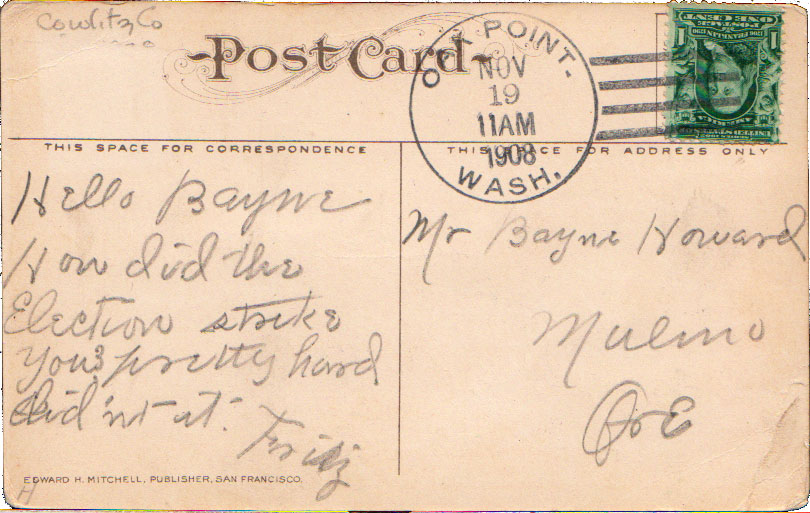 Cowlitz Co
Post Card
OAK POINT.
NOV
19
11AM
1908
WASH.
POSTAGE
ONE CENT
1 1
THIS SPACE FOR CORRESPONDENCE
THIS SPACE FOR ADDRESS ONLY
Hello Bayne
How did the
Election strike
you? pretty hard
did'nt it.
Fritz
Mr Bayne Howard
Mulino
Ore
EDWARD H. MITCHELL, PUBLISHER, SAN FRANCISCO.
H